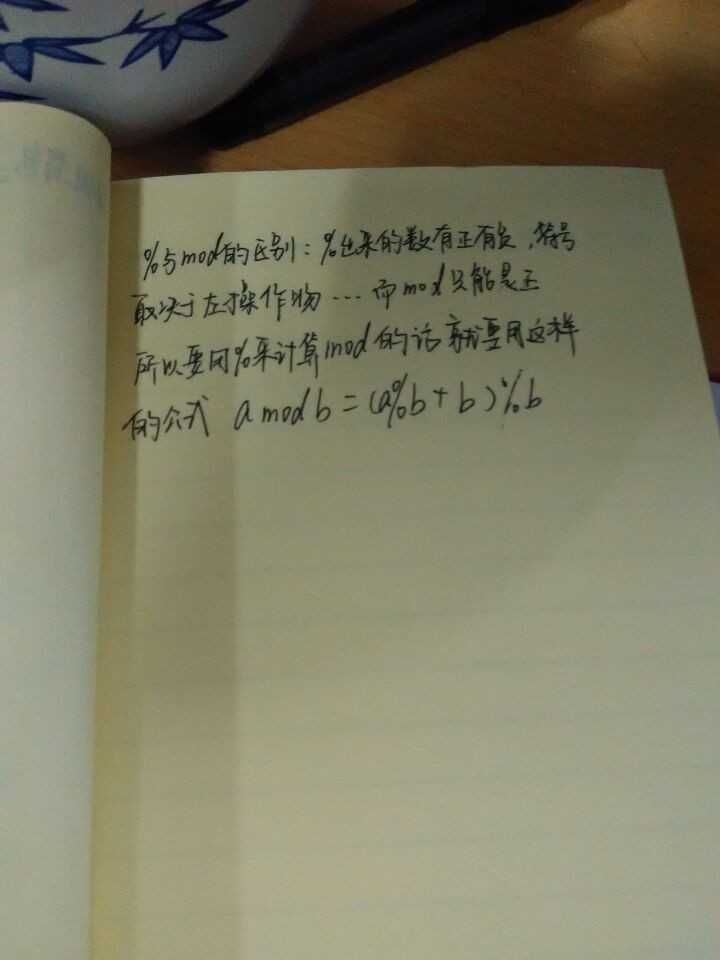 %与mod的区别：%出来的数有正有负，符号
取决于左操作物…而mod只能是正
所以要用%来计算mod的话就要用这样
的公式 a mod b = (a%b + b)%b